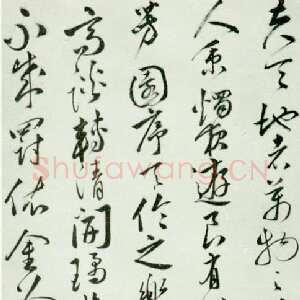 夫天地者萬物之
人秉燭夜遊良有
芳園序天倫之樂
高談轉清開瓊
不成罰依金谷
Shufawang.CN